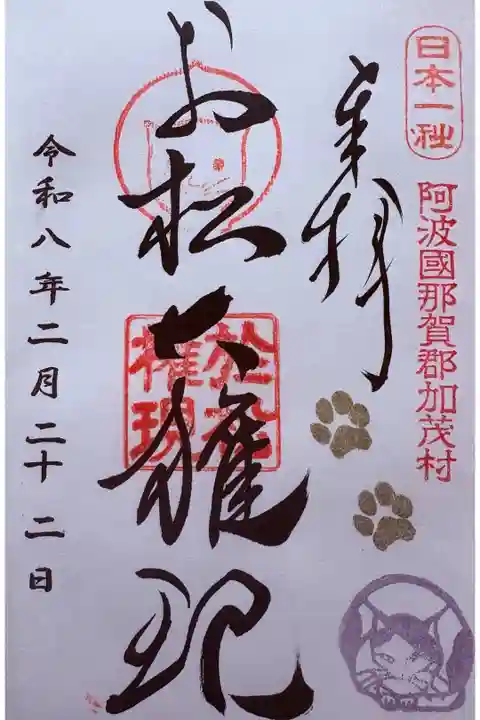 日本一社
阿波國那賀郡加茂村
奉拝
お松大権現
於松
權現
令和八年二月二十二日